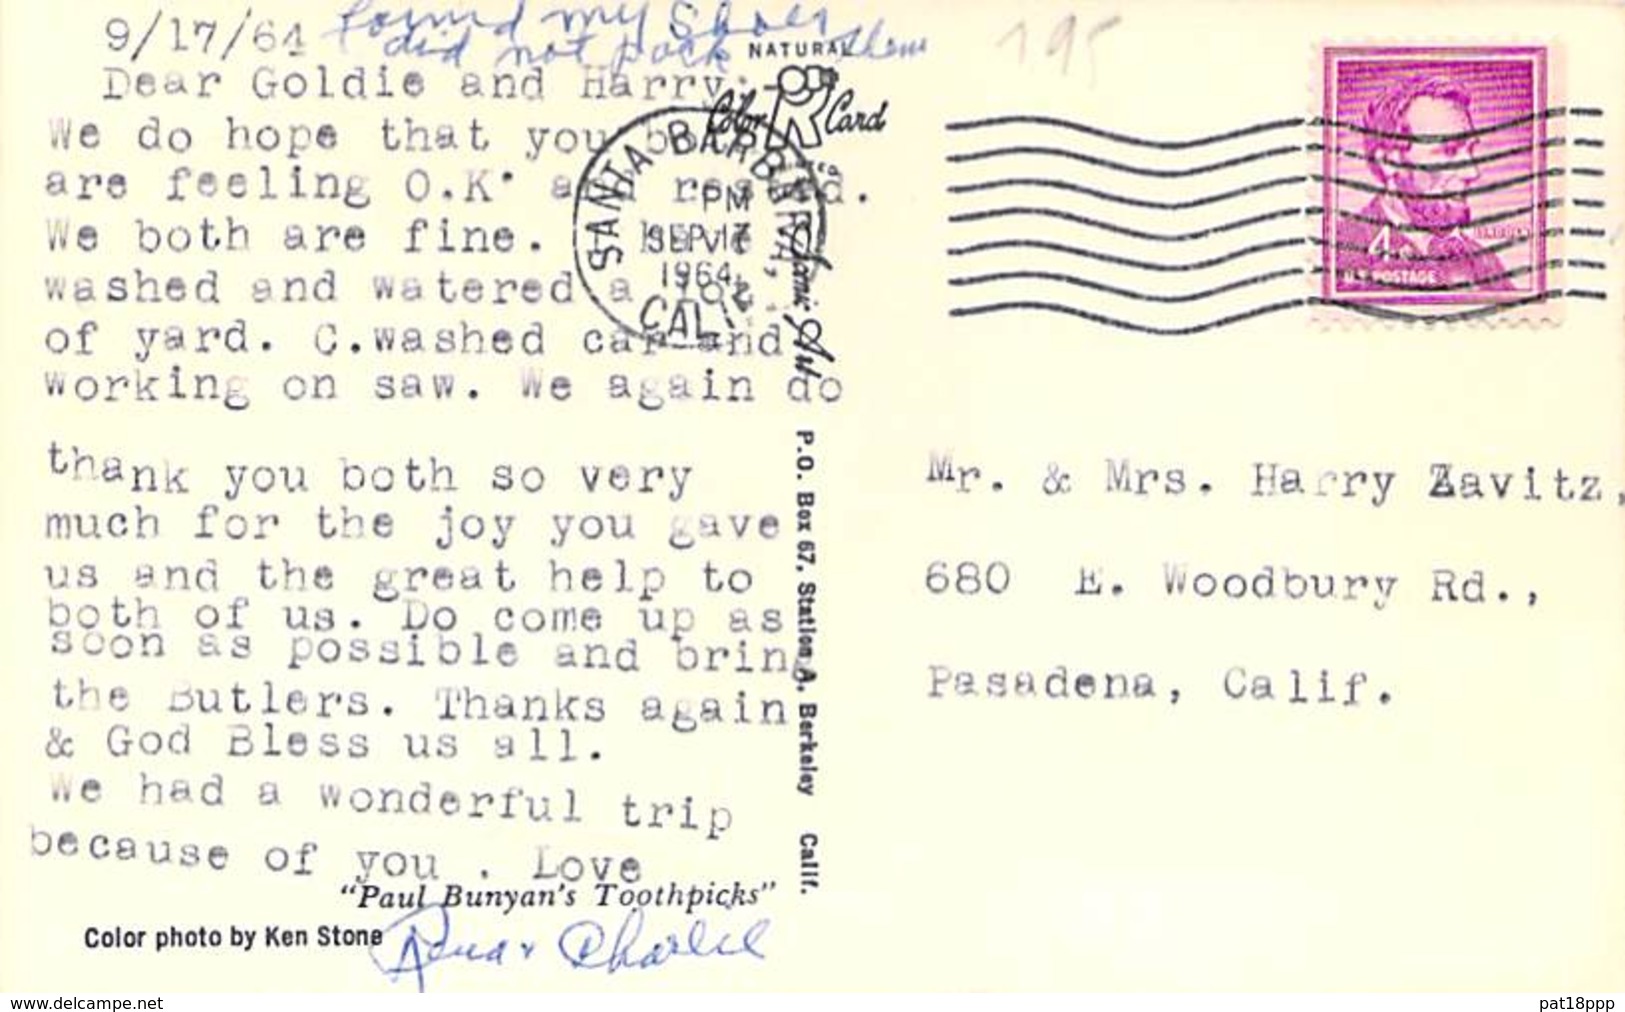 found my Shoes
did not pack them
9/17/64
Dear Goldie and Harry:-
We do hope that you both
are feeling O.K. and rested.
We both are fine. I have
washed and watered a lot
of yard. C.washed car and
working on saw. We again do
thank you both so very
much for the joy you gave
us and the great help to
both of us. Do come up as
soon as possible and bring
the Butlers. Thanks again
& God Bless us all.
We had a wonderful trip
because of you . Love
"Paul Bunyan's Toothpicks"
Color photo by Ken Stone
& Charlie
NATURAL
Color Card
P.O. Box 67, Station A, Berkeley Calif.
SANTA BARBARA,
PM
SEP 17
1964
CAL
195
4¢
U.S. POSTAGE
Mr. & Mrs. Harry Zavitz,
680 E. Woodbury Rd.,
Pasadena, Calif.
www.delcampe.net
pat18ppp